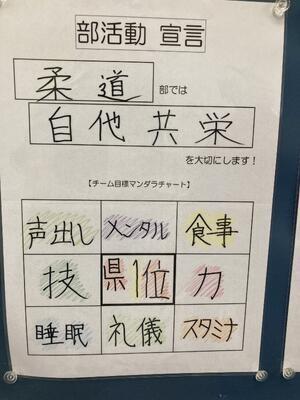 部活動 宣言
柔道 部では
自他共栄
を大切にします!
【チーム目標マンダラチャート】
声出し メンタル 食事
技 県1位 力
睡眠 礼儀 スタミナ